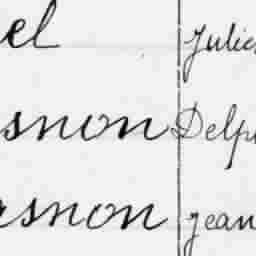 el Julie
snon Delp
rsnon jean